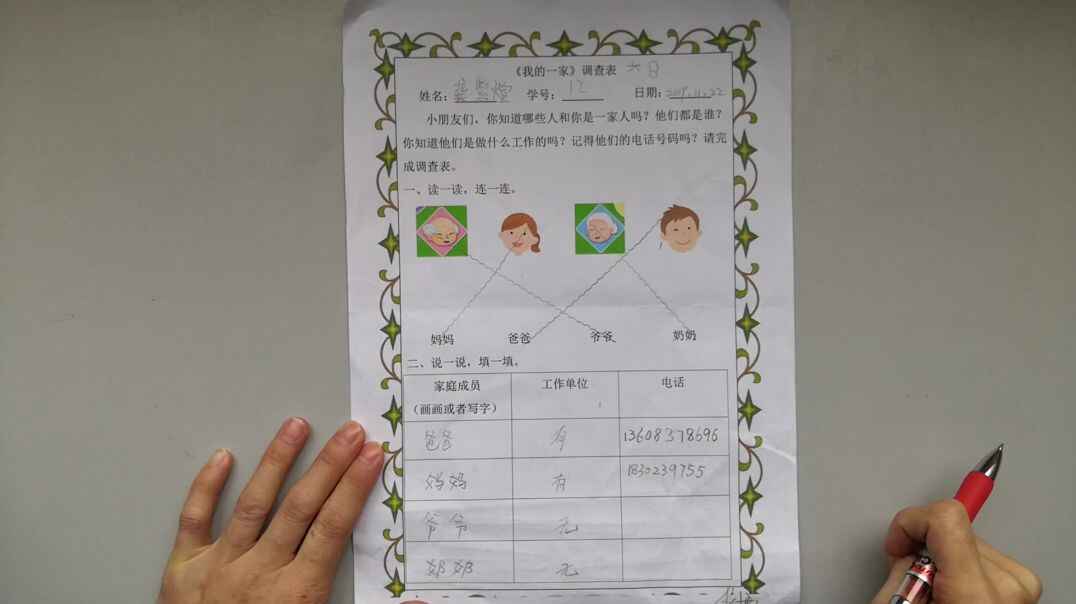 《我的一家》调查表 六8
姓名: 学号: 12 日期: 2018.11.22
小朋友们，你知道哪些人和你是一家人吗？他们都是谁？
你知道他们是做什么工作的吗？记得他们的电话号码吗？请完
成调查表。
一、读一读，连一连。
妈妈 爸爸 爷爷 奶奶
二、说一说，填一填。
家庭成员 工作单位 电话
（画画或者写字）
爸爸 有 13608378696
妈妈 有 1830239755
爷爷 无
奶奶 无